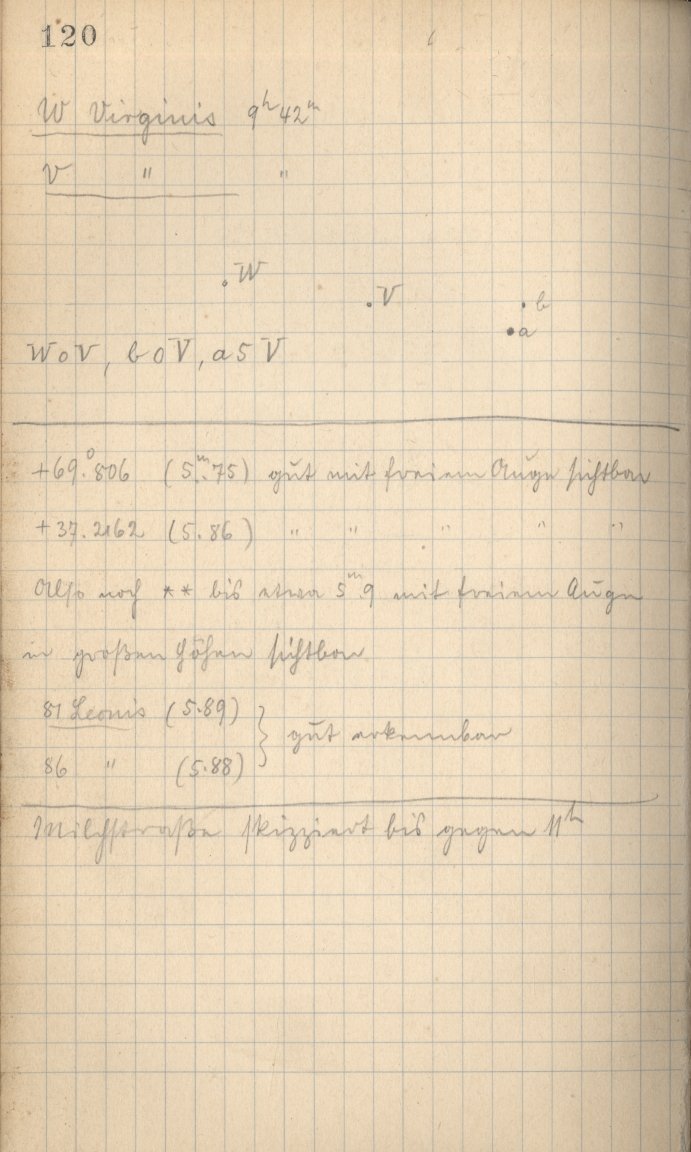 120
W Virginis 9ʰ 42ᵐ
V " "
W
V
b
a
W0V, b0V, a5V
+69°.806 (5ᵐ.75) gut mit freiem Auge sichtbar
+37.2162 (5.86) " " " " "
Also noch ** bis etwa 5ᵐ.9 mit freiem Auge
in großen Höhen sichtbar
81 Leonis (5.89)
86 " (5.88)
} gut erkennbar
Milchstraße skizziert bis gegen 11ʰ